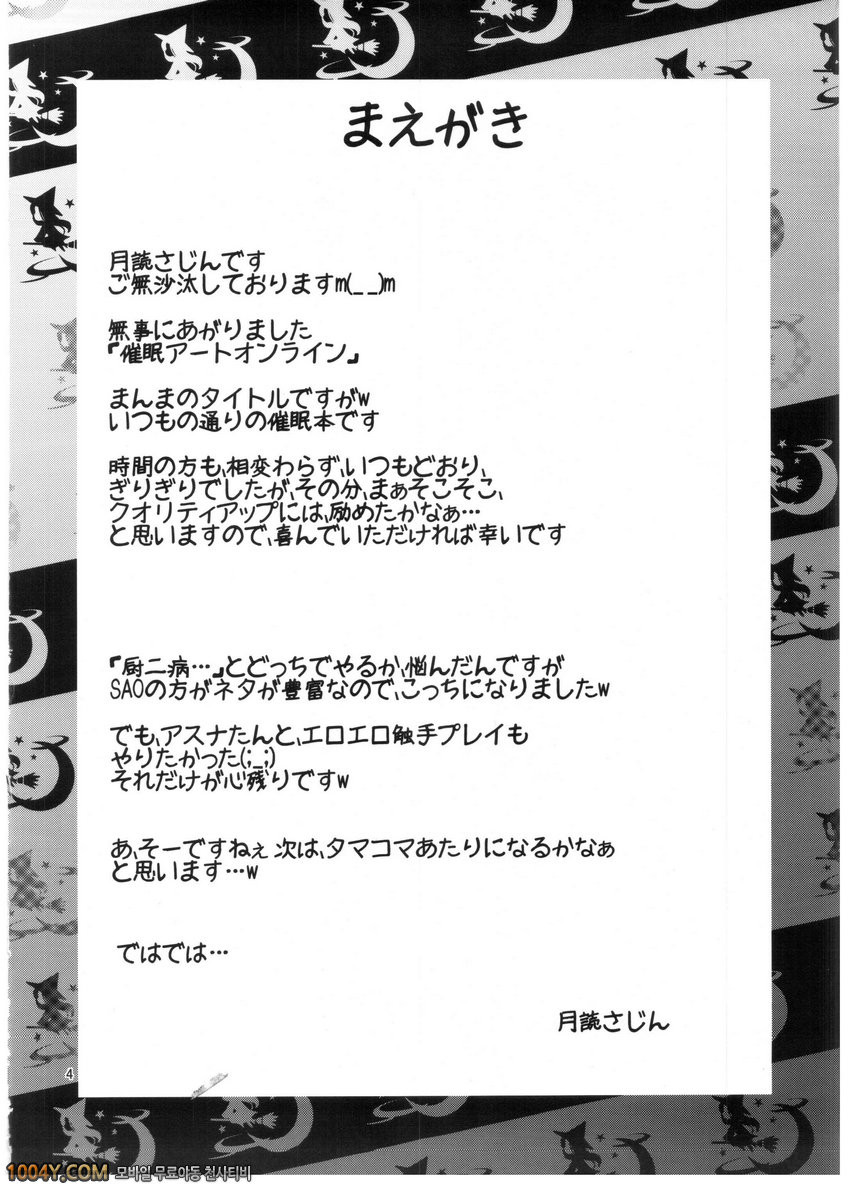 まえがき
月読さじんです
ご無沙汰しておりますm(_ _)m
無事にあがりました
『催眠アートオンライン』
まんまのタイトルですがw
いつもの通りの催眠本です
時間の方も、相変わらず、いつもどおり、
ぎりぎりでしたが、その分、まぁそこそこ、
クオリティアップには、励めたかなぁ…
と思いますので、喜んでいただければ幸いです
『厨二病…』とどっちでやるか、悩んだんですが
SAOの方がネタが豊富なので、こっちになりましたw
でも、アスナたんと、エロエロ触手プレイも
やりたかった(;_;)
それだけが心残りですw
あ、そーですねぇ 次は、タマコマあたりになるかなぁ
と思います…w
ではでは…
月読さじん
4
1004Y.COM 모바일 무료야동 천사티비